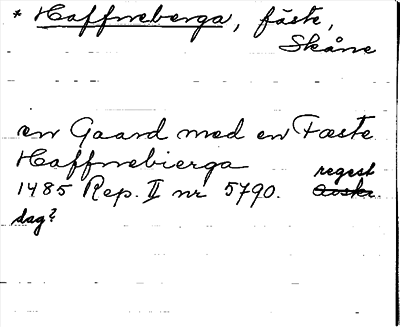 * Haffneberga, fäste,
Skåne
en Gaard med en Fæste
Haffnebierga
regest
1485 Rep. II nr 5790. Avskr.
dag?